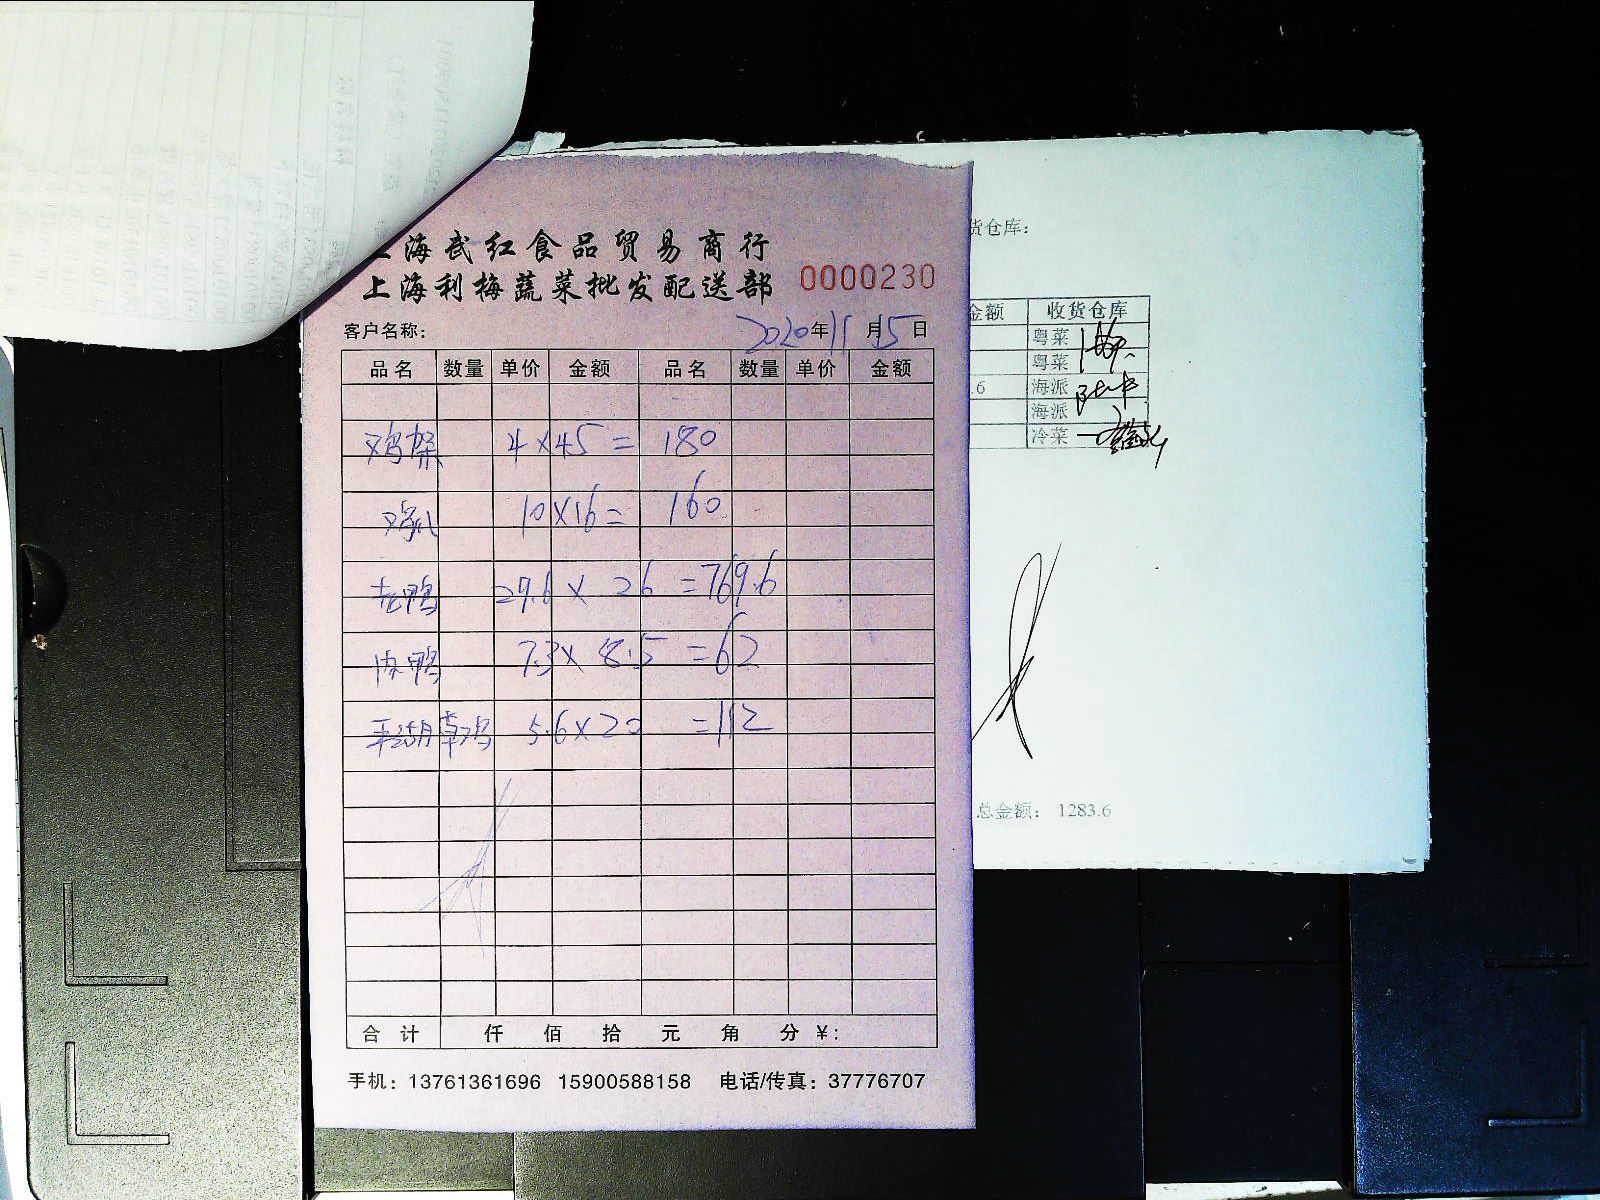 上海武红食品贸易商行
上海利梅蔬菜批发配送部 0000230
客户名称: 2020年11月15日
品名 数量 单价 金额 品名 数量 单价 金额
鸡架 4×45= 180
鸡爪 10×16= 160
老鸭 29.6× 26 =769.6
7.3× 8.5 =62
平湖草鸡 5.6×20 =112
合计 仟 佰 拾 元 角 分 ¥:
手机: 13761361696 15900588158 电话/传真: 37776707
货仓库:
金额 收货仓库
粤菜
粤菜
.6 海派
海派
冷菜
总金额: 1283.6